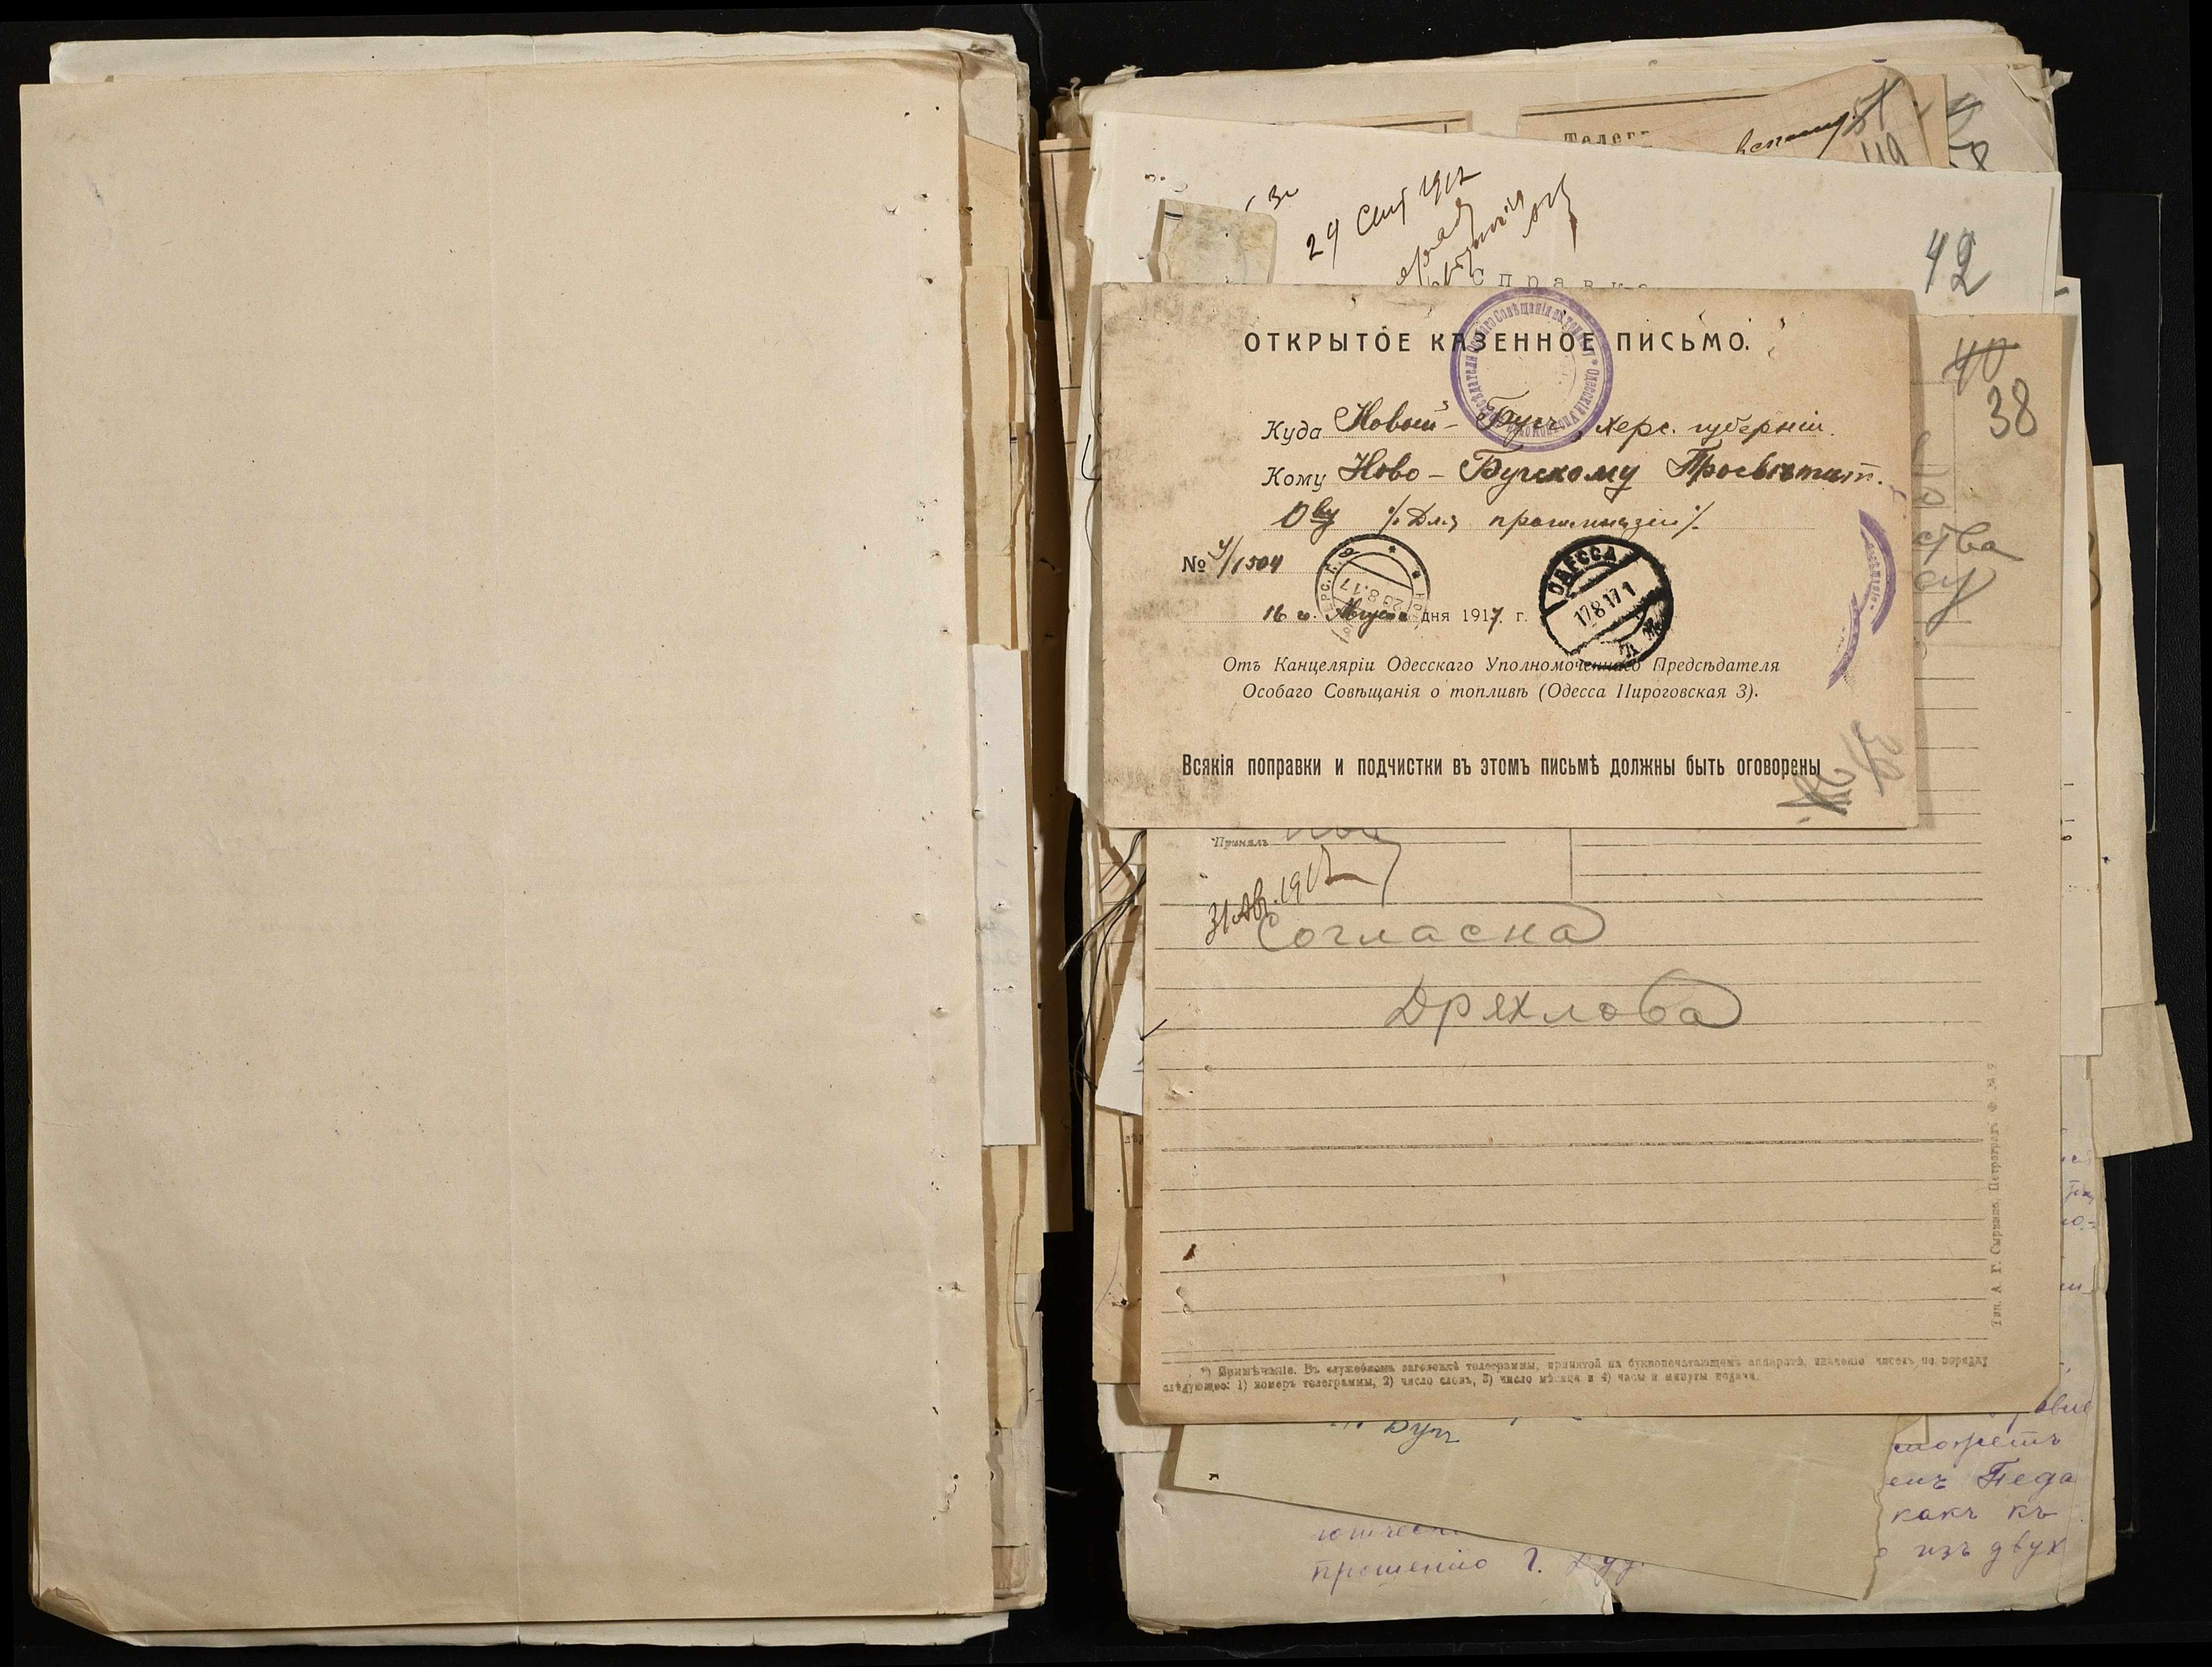 Телегр
42
29 Сент 1917
Справка
40
38
ОТКРЫТОЕ КАЗЕННОЕ ПИСЬМО.
Куда Новый-Бугъ, херс. губерніи.
Кому Ново-Бугскому Просвѣтит.
О-ву /Для прогимназіи/.
№ 4/1504
16 го Августа дня 1917 г.
ОДЕССА
17 8 17 1
Отъ Канцеляріи Одесскаго Уполномоченнаго Предсѣдателя
Особаго Совѣщанія о топливѣ (Одесса Пироговская 3).
Всякія поправки и подчистки въ этомъ письмѣ должны быть оговорены
ства
Принялъ
31 Авг. 1917
Согласна
Дряхлова
Тип. А. Г. Сыркина, Петроградъ
*) Примѣчаніе. Въ служебномъ заголовкѣ телеграммы, принятой на буквопечатающемъ аппаратѣ, значеніе чиселъ по порядку
слѣдующее: 1) номеръ телеграммы, 2) число словъ, 3) число мѣсяца и 4) часы и минуты подачи.
Бугъ
енъ Педа
какъ къ
изъ двух
прошенію Г.